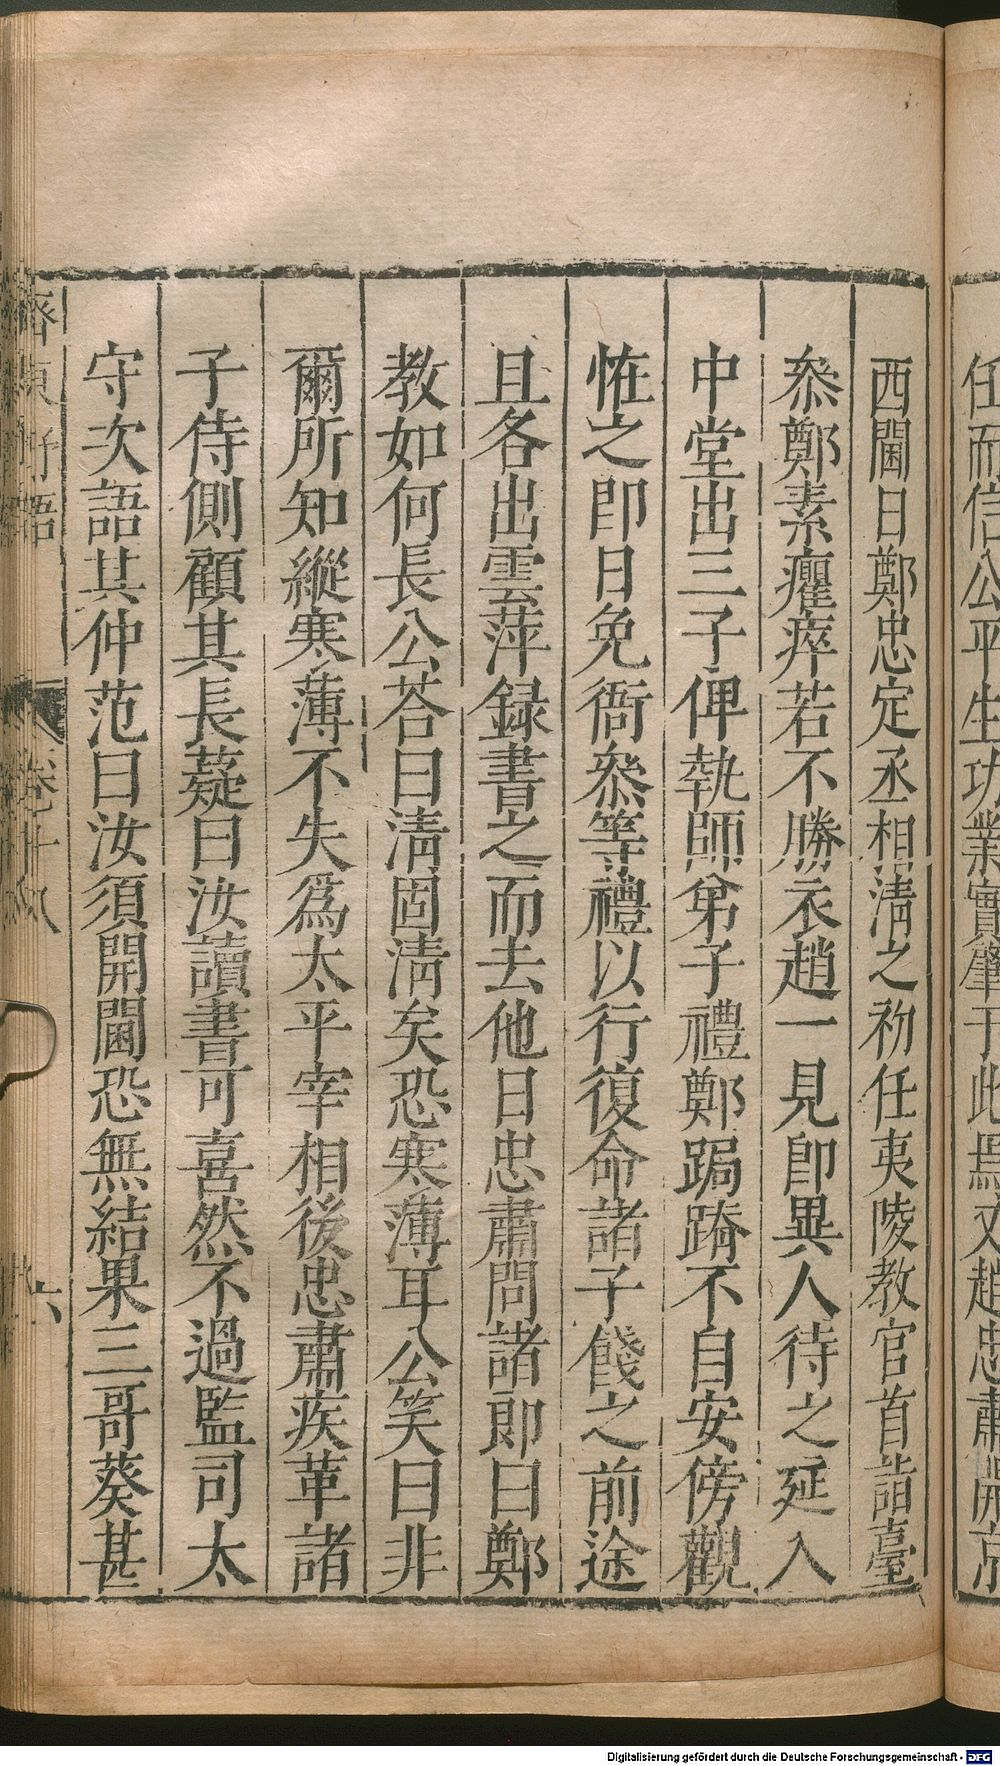 任而信公平生功業實肇于此焉又趙忠肅開京
西閫日鄭忠定丞相淸之初任夷陵教官首詣臺
叅鄭素癯瘁若不勝衣趙一見卽異人待之延入
中堂出三子俾執師弟子禮鄭跼蹐不自安傍觀
恠之卽日免衙叅等禮以行復命諸子餞之前途
且各出雲萍録書之而去他日忠肅問諸郎曰鄭
教如何長公荅曰淸固淸矣恐寒薄耳公笑曰非
爾所知縱寒薄不失爲太平宰相後忠肅疾革諸
子侍側顧其長薿曰汝讀書可喜然不過監司太
守次語其仲范曰汝須開閫恐無結果三哥葵甚
齊東野語 卷十八 六
Digitalisierung gefördert durch die Deutsche Forschungsgemeinschaft - DFG